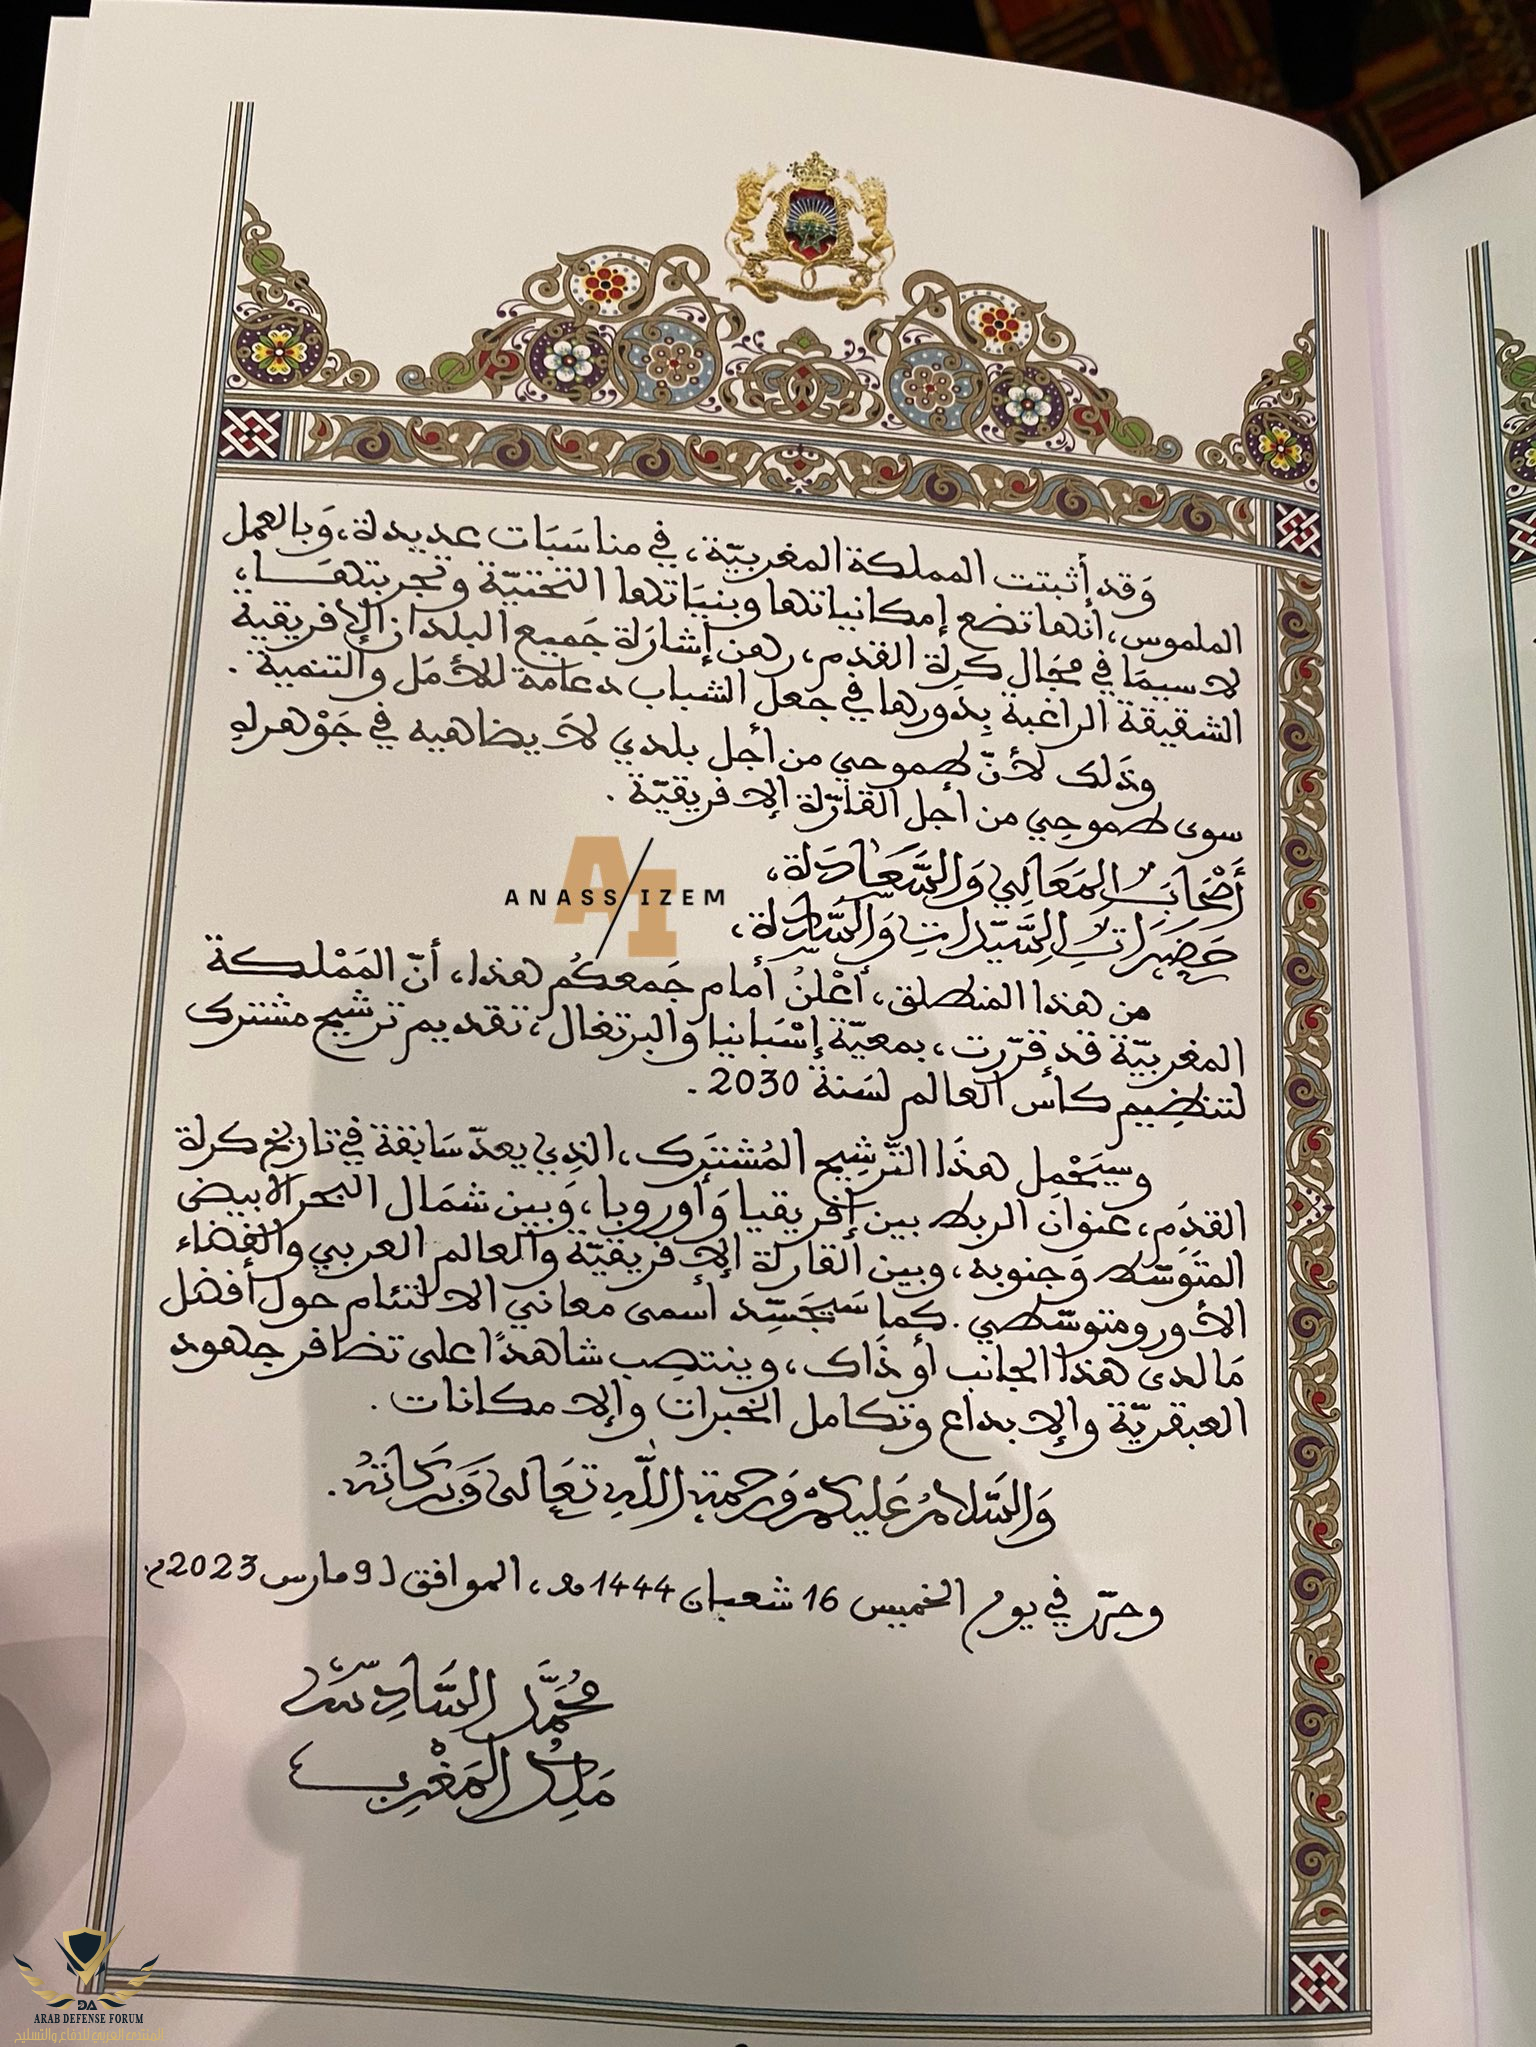 وَقد أثبتت المملكة المغربيّة، في مناسَبَات عديدة، وَبالعمل
الملموس، أنها تضع إمكانياتها وبنيَاتها التحتيّة وتجربتهــا،
لا سيمَا في مجَال كرة القدم، رهن إشارَة جَميع البلدان الإفريقية
الشقيقة الراغبة بِدَورها في جعل الشباب دعامة للأمَل والتنمية .
وذَلك لأنّ طموحي من أجل بلدي لاَ يضاهيه في جَوْهره
سوى طموحِي من أجل القارّة الإفريقيّة .
أَصْحَابَ المَعَالِي وَالسَّعَادَة،
حَضَرَاتِ السَّيّدَاتِ وَالسَّادَة،
من هذا المنطلق، أعْلنُ أمام جَمعكُم هذا، أنّ المَمْلكة
المغربيّة قد قرّرت، بمعيّة إسْبَانيا والبرتغال، تقديم ترشيح مشترك
لتنظِيم كأس العالم لسَنة 2030 .
وسيَحْمِل هذَا التّرشِيح المُشترَك، الذِي يعدّ سَابقة في تاريخ كرة
القدَم، عنوان الربط بين إفريقيا وَأوروبا، وَبين شمَال البحر الأبيض
المتَوسّط وَجنوبه، وبين القارة الإفريقيّة والعالم العربي والفضاء
الأورومتوسّطي . كما سَيجَسِّد أسمى معاني الالتئام حول أفضل
مَا لدى هذا الجانب أو ذَاك، وينتصِب شاهدًا على تظافر جهود
العبقريّة والإبداع وتكامل الخبرات والإمكانات .
وَالسَّلامُ عَليكمْ وَرحمة اللَّهِ تعَالى وَبَركاتهُ .
وحرّر في يوم الخميس 16 شعبان 1444 هـ، الموافق لـ 9 مارس 2023م.
مُحَمَّد السَّادِس
مَلِكُ المَغْرِب
ANASS IZEM
AI
DA
ARAB DEFENSE FORUM
المنتدى العربي للدفاع والتسليح